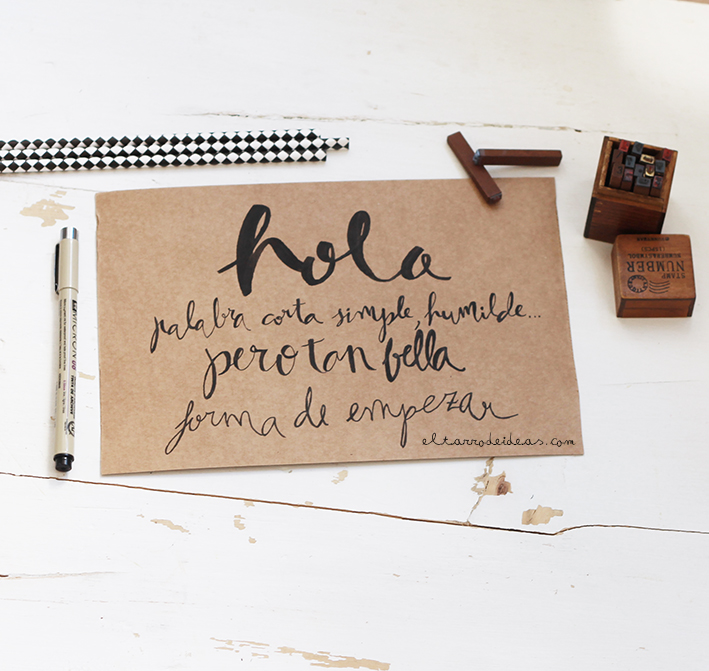 hola
palabra corta simple, humilde...
pero tan bella
forma de empezar
eltarrodeideas.com
MICRON
STAMP
NUMBER